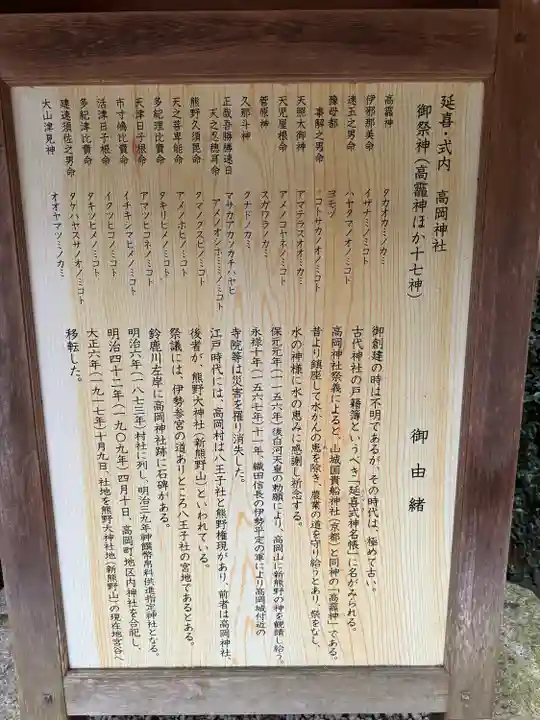 延喜・式内　高岡神社
御祭神（高龗神ほか十七神）
高龗神　タカオカミノカミ
伊邪那美命　イザナミノミコト
速玉之男命　ハヤタマノオノミコト
豫母都　ヨモツ
事解之男命　コトサカノオノミコト
天照大御神　アマテラスオオカミ
天児屋根命　アメノコヤネノミコト
菅原神　スガワラノカミ
久那斗神　クナドノカミ
正哉吾勝勝速日　マサカアカツカチハヤヒ
天之忍穂耳命　アメノオシホミミノミコト
熊野久須毘命　クマノクスヒノミコト
天之菩卑能命　アメノホヒノミコト
多紀理比賣命　タキリヒメノミコト
天津日子根命　アマツヒコネノミコト
市寸嶋比賣命　イチキシマヒメノミコト
活津日子根命　イクツヒコネノミコト
多紀津比賣命　タキツヒメノミコト
建速須佐之男命　タケハヤスサノオノミコト
大山津見神　オオヤマツミノカミ
御由緒
御創建の時は不明であるが、その時代は、極めて古い。
古代神社の戸籍簿というべき「延喜式神名帳」に名がみられる。
高岡神社祭義によると、山城国貴船神社（京都）と同神の「高龗神」である。
昔より鎮座して水かんの患を除き、農業の道を守り給うとあり、祭をなし、
水の神様に水の恵みに感謝し祈念する。
保元元年（一一五六年）後白河天皇の勅願により、高岡山に新熊野の神を観請し給う。
永禄十年（一五六七年）十一年、織田信長の伊勢平定の軍により高岡城付近の
寺院等は災害を罹り消失した。
江戸時代には、高岡村は八王子社と熊野権現があり、前者は高岡神社、
後者が、熊野大神社（新熊野山）といわれている。
祭議には、伊勢参宮の道ありところ八王子社の宮地であるとある。
鈴鹿川左岸に高岡神社跡に石碑がある。
明治六年（一八七三年）村社に列し、明治三九年神饌幣帛料供進指定神社となる。
明治四十二年（一九〇九年）四月十日、高岡町地区内神社を合祀し、
大正六年（一九一七年）十月九日、社地を熊野大神社地（新熊野山）の現在地宮谷へ
移転した。